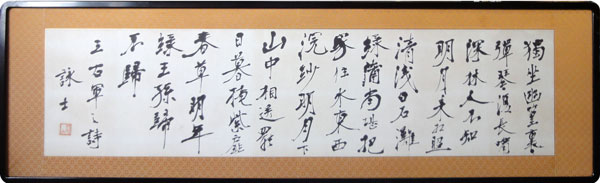 獨坐幽篁裏
彈琴復長嘯
深林人不知
明月来相照
清浅白石灘
緑蒲向堪把
家住水東西
浣紗明月下
山中相送罷
日暮掩柴扉
春草明年
緑王孫歸
不歸
王右軍之詩
詠士